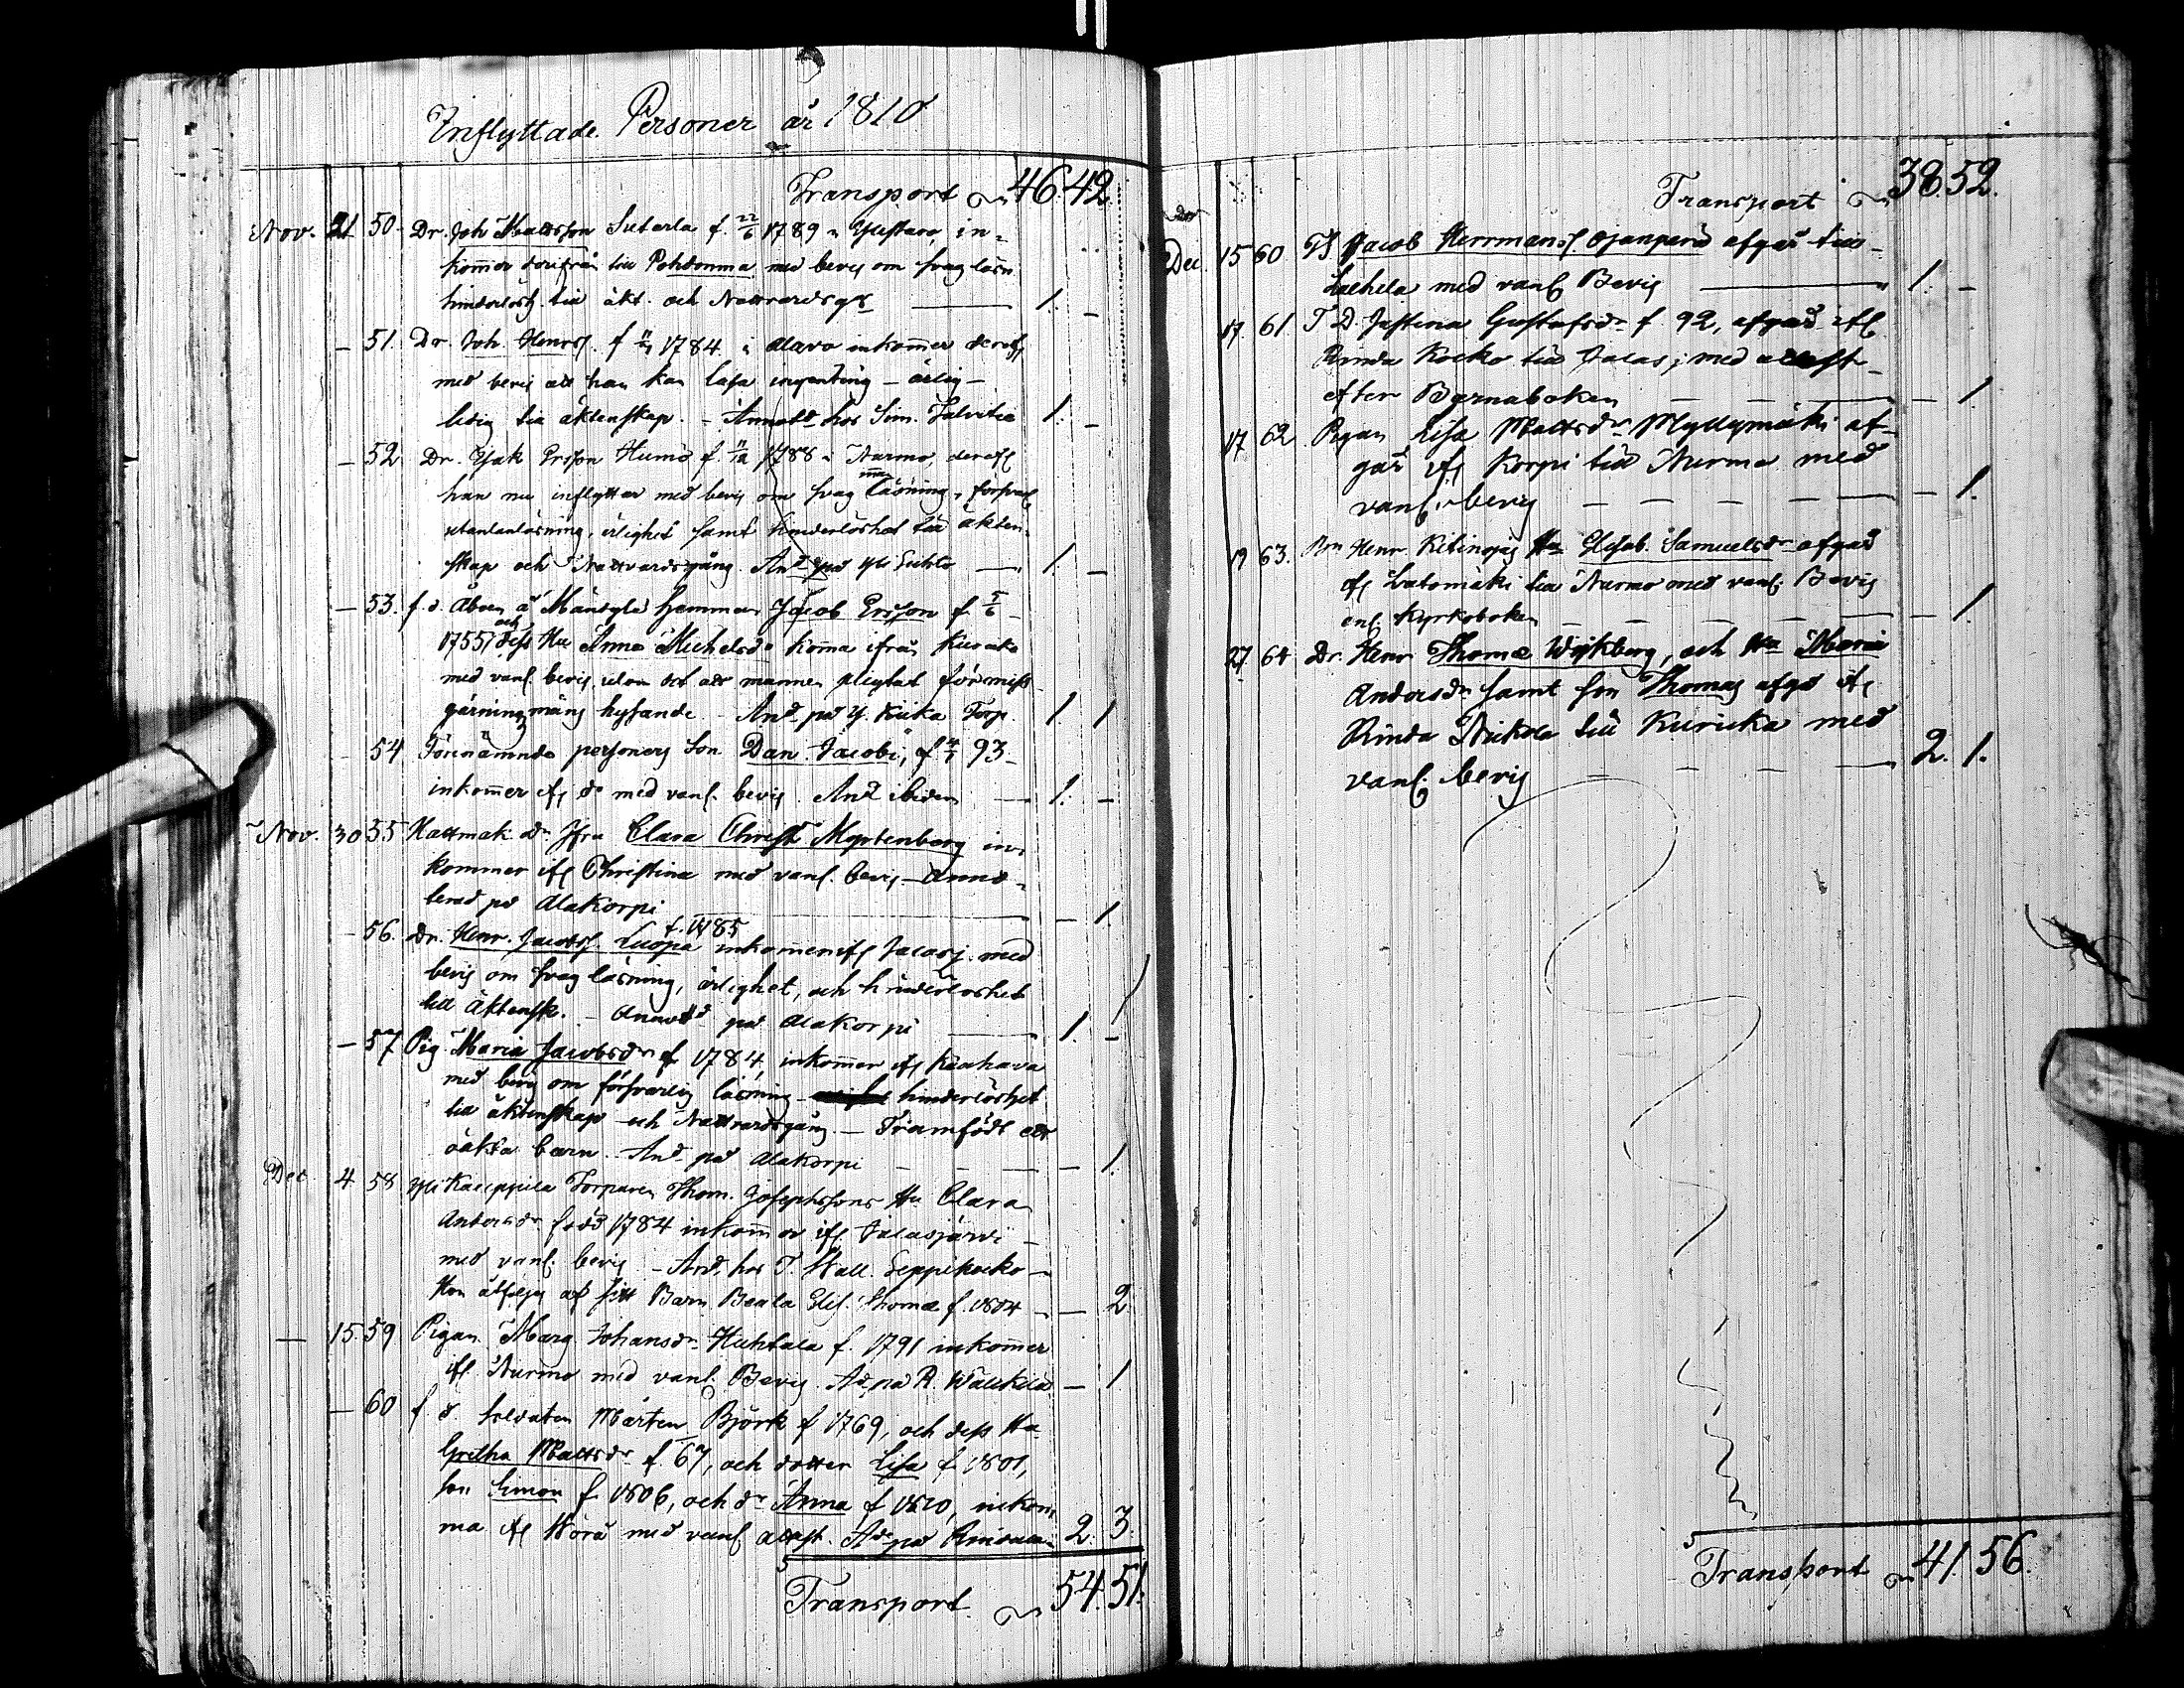 Inflyttade Personer år 1810
Transport 46. 42.
Nov. 21 50. Dr. Joh Mattsson f. 22/6 1789 i in-
kom̄er därifrån till med bevis om svag läsn
hinderlösh. till äkt. och Nattvardsgg 1. –
– 51. Dr. Joh. Henrss. f. 1784 i Alavo inkom̄er
med bevis att han kan läsa ingenting – ärlig –
ledig till äktenskap. – hos Sim. 1. –
– 52 Dr. Ersson f. 1788 i Nurmo,
han nu inflyttar med bevis om svag läsning,
utanläsning, ärlighet samt hinderlöshet till äkten-
skap och Nattvardsgång. And på 1. –
– 53. f. d. Åboen å hemman Jacob Ersson f. 5/6
1755, och dess Hu Anna Michelsdr kom̄a ifrån Kuricka
med vanl. bevis, utom det att mannen pligtat för
hysande – And. på Torp. 1. 1
– 54 Förenämnde personers Son Dan. Jacobi, f. 93
inkom̄er ifr do med vanl. bevis. And ibidem 1. –
Nov. 30 55 Hattmak. dr Jfru Clara Christ. in-
kommer ifr Christina med vanl. bevis – anno-
terad på Alakorpi – 1.
– 56. Dr. Henr. Jacobss. Luopa f. 1785 inkom̄er ifr Jalasj. med
bevis om svag läsning, ärlighet, och hinderlöshet
till äktensk. – på Alakorpi 1. –
– 57 Pig. Maria Jacobsdr f. 1784, inkom̄er ifr Kauhava
med bevis om försvarlig läsning – hinderlöshet
till äktenskap och Nattvardsgång. – Framfödt ett
oäkta barn. And. på Alakorpi – 1.
Dec. 4 58 Kauppila Torparen Thom. Josephssons Hu Clara
Andersdr född 1784 inkom̄er ifr Jalasjärvi –
med vanl. bevis – And. hos T.
Hon åtföljes af sitt Barn Beata Elis. Thomæ f. 1804 – 2
– 15. 59 Pigan Marg. Johansdr Huhtala f. 1791 inkom̄er
ifr. Nurmo med vanl. Bevis. Ad. på R. – 1
– 60 f. d. soldaten Mårten Björk f 1769, och dess Hu
Gretha Mattsdr f. 67, och dotter Lisa f. 1801,
son Simon f. 1806, och dr Anna f 1810, inkom-
ma ifr Vörå med vanl attest. Ad. på Rindala 2. 3.
Transport 54. 51.
Transport 38 52.
Dec. 15 60 Jacob Herrmanss. Ojanperä afgår till
med vanl. Bevis 1. –
17 61 T. D. Justina Gustafsdr f. 92, afgår ifr
Rinda Kocko till Jalasj. med attest
efter Byrnaboken – 1.
17 62 Pigan Lisa Mattsdr Myllymäki af-
går ifr Korpi till Nurmo med
vanl. bevis – 1.
19 63. Henr. Hu Elisab. Samuelsdr afgår
ifr Latomäki till Nurmo med vanl. Bevis
enl. Kyrkoboken – 1.
27 64 Dr. Henr Thomæ Wijkberg, och Hu Maria
Andersdr samt son Thomas afgå ifr
Rinda Nickola till Kuricka med
vanl. bevis 2. 1.
Transport 41. 56.